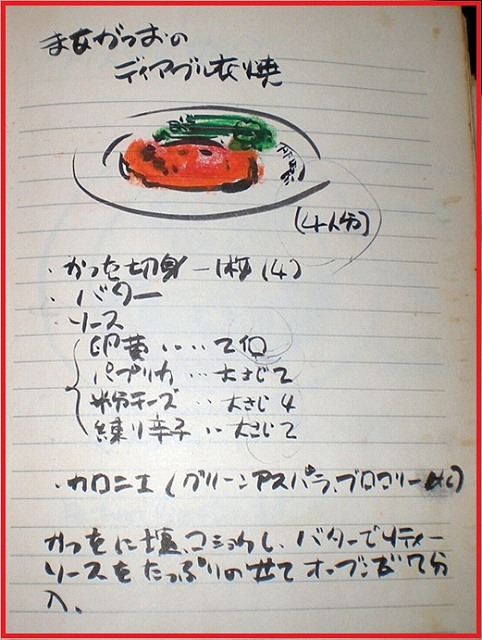 まながつおの
ディアブル衣焼
(4人分)
・かつを切身 一枚(4)
・バター
・ソース
卵黄‥‥2個
パプリカ‥大さじ2
粉チーズ‥大さじ4
練り辛子‥大さじ2
・カロニエ(グリーンアスパラ、ブロコリー
かつをに塩、コショウし、バターでソティー
ソースをたっぷりのせてオーブンで7分
入。